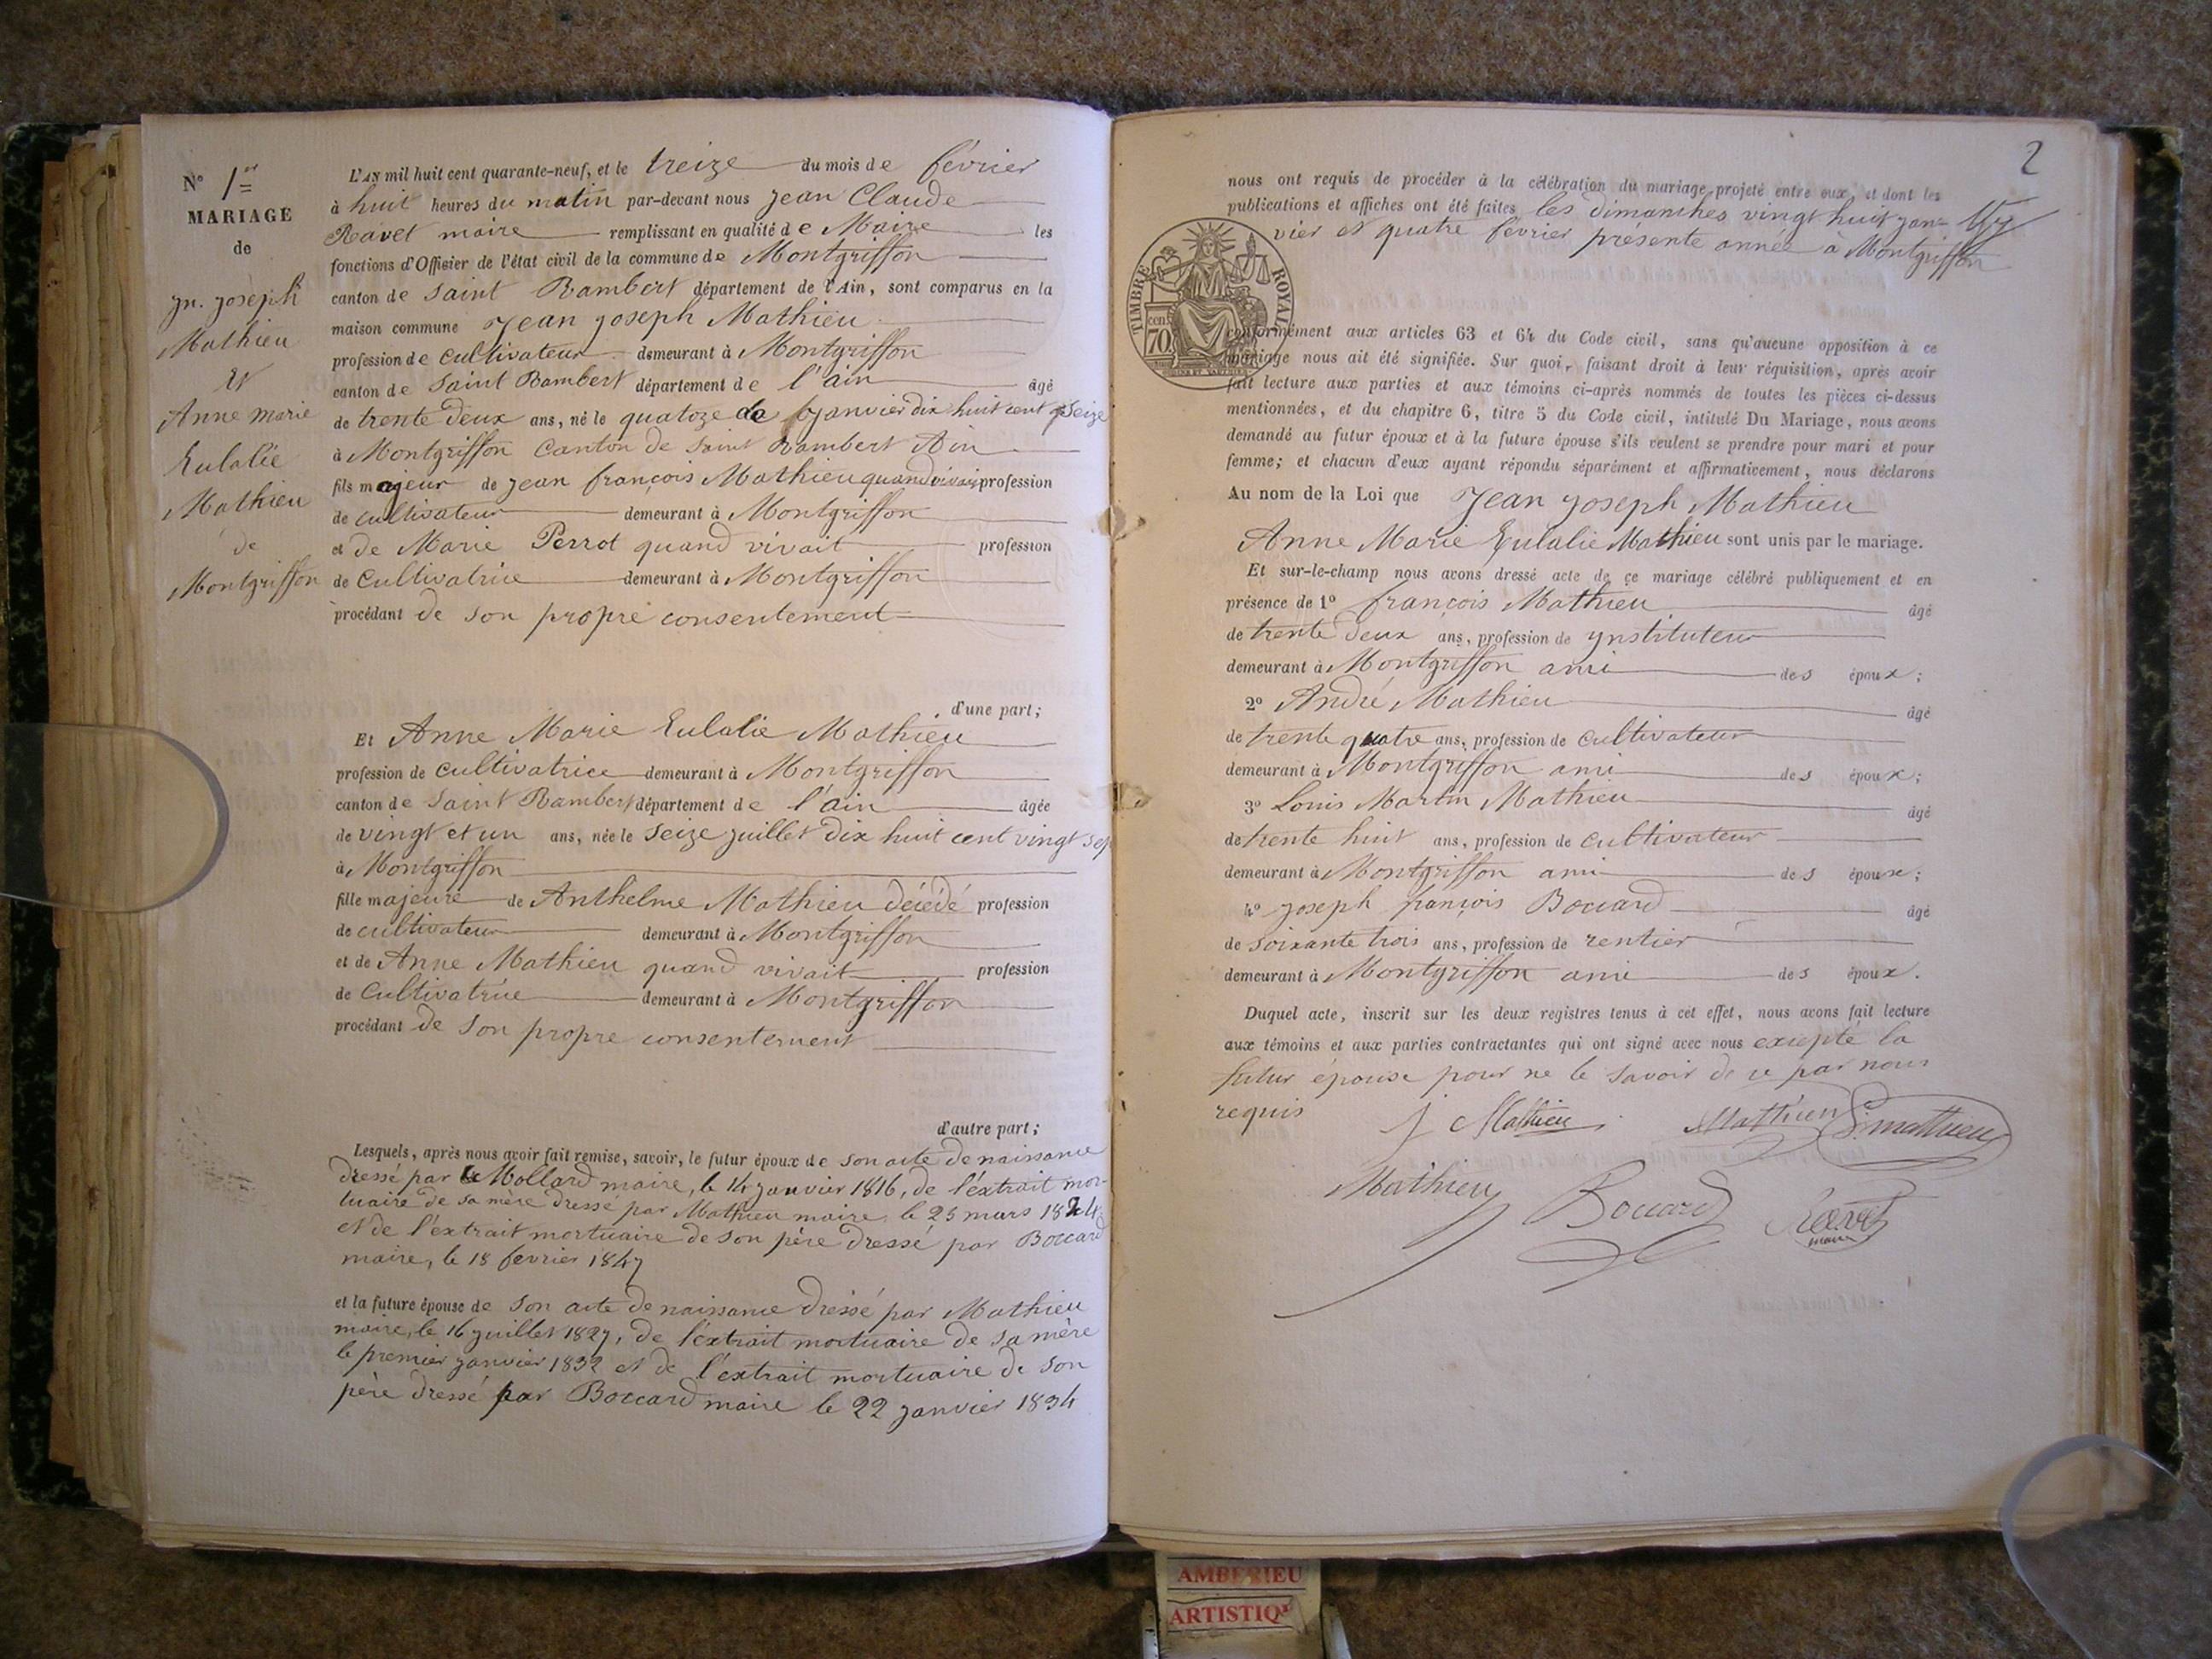 N° 1er
MARIAGE
de
Jn. Joseph
Mathieu
Et
Anne Marie
Eulalie
Mathieu
de
Montgriffon
L'AN mil huit cent quarante-neuf, et le treize du mois de février
à huit heures du matin par-devant nous Jean Claude
Ravet maire remplissant en qualité de Maire les
fonctions d'Officier de l'état civil de la commune de Montgriffon
canton de Saint Rambert département de l'Ain, sont comparus en la
maison commune Jean Joseph Mathieu
profession de cultivateur demeurant à Montgriffon
canton de Saint Rambert département de l'ain âgé
de trente deux ans, né le quatoze de janvier dix huit cent seize
à Montgriffon Canton de Saint Rambert Ain
fils majeur de Jean françois Mathieu quand vivait profession
de cultivateur demeurant à Montgriffon
et de Marie Perrot quand vivait profession
de Cultivatrice demeurant à Montgriffon
procédant de son propre consentement
d'une part;
Et Anne Marie Eulalie Mathieu
profession de cultivatrice demeurant à Montgriffon
canton de Saint Rambert département de l'ain âgée
de vingt et un ans, née le seize juillet dix huit cent vingt sep
à Montgriffon
fille majeure de Anthelme Mathieu décédé profession
de cultivateur demeurant à Montgriffon
et de Anne Mathieu quand vivait profession
de Cultivatrice demeurant à Montgriffon
procédant de son propre consentement
d'autre part;
Lesquels, après nous avoir fait remise, savoir, le futur époux de son acte de naissance
dressé par Mollard maire, le 14 janvier 1816, de l'extrait mor-
tuaire de sa mère dressé par Mathieu maire, le 25 mars 1824
et de l'extrait mortuaire de son père dressé par Boccard
maire, le 18 fevrier 1847
et la future épouse de son acte de naissance dressé par Mathieu
maire, le 16 juillet 1827, de l'extrait mortuaire de sa mère
le premier janvier 1832 et de l'extrait mortuaire de son
père dressé par Boccard maire le 22 janvier 1834
2
nous ont requis de procéder à la célébration du mariage projeté entre eux, et dont les
publications et affiches ont été faites les dimanches vingt huit jan-
vier et quatre fevrier présente année à Montgriffon
TIMBRE ROYAL
cen. 70
conformément aux articles 63 et 64 du Code civil, sans qu'aucune opposition à ce
mariage nous ait été signifiée. Sur quoi, faisant droit à leur réquisition, après avoir
fait lecture aux parties et aux témoins ci-après nommés de toutes les pièces ci-dessus
mentionnées, et du chapitre 6, titre 5 du Code civil, intitulé Du Mariage, nous avons
demandé au futur époux et à la future épouse s'ils veulent se prendre pour mari et pour
femme; et chacun d'eux ayant répondu séparément et affirmativement, nous déclarons
Au nom de la Loi que Jean Joseph Mathieu
Anne Marie Eulalie Mathieu sont unis par le mariage.
Et sur-le-champ nous avons dressé acte de ce mariage célébré publiquement et en
présence de 1° françois Mathieu âgé
de trente deux ans, profession de ynstituteur
demeurant à Montgriffon ami des époux;
2° André Mathieu âgé
de trente quatre ans, profession de cultivateur
demeurant à Montgriffon ami des époux;
3° Louis Martin Mathieu âgé
de trente huit ans, profession de cultivateur
demeurant à Montgriffon ami des époux;
4° Joseph françois Boccard âgé
de soixante trois ans, profession de rentier
demeurant à Montgriffon ami des époux.
Duquel acte, inscrit sur les deux registres tenus à cet effet, nous avons fait lecture
aux témoins et aux parties contractantes qui ont signé avec nous excepté la
futur épouse pour ne le savoir de ce par nous
requis
J Mathieu Mathieu Mathieu
Mathieu Boccard Ravet
maire
AMBERIEU
ARTISTIQ